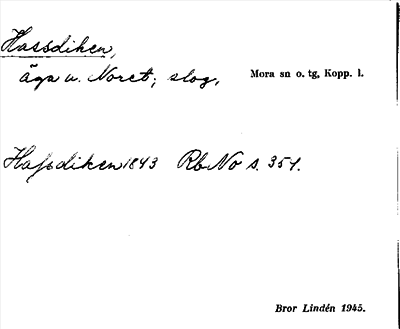 Hassdiken,
äga u. Noret; slog, Mora sn o. tg, Kopp. l.
Hassdiken 1843 Rb No s. 351.
Bror Lindén 1945.